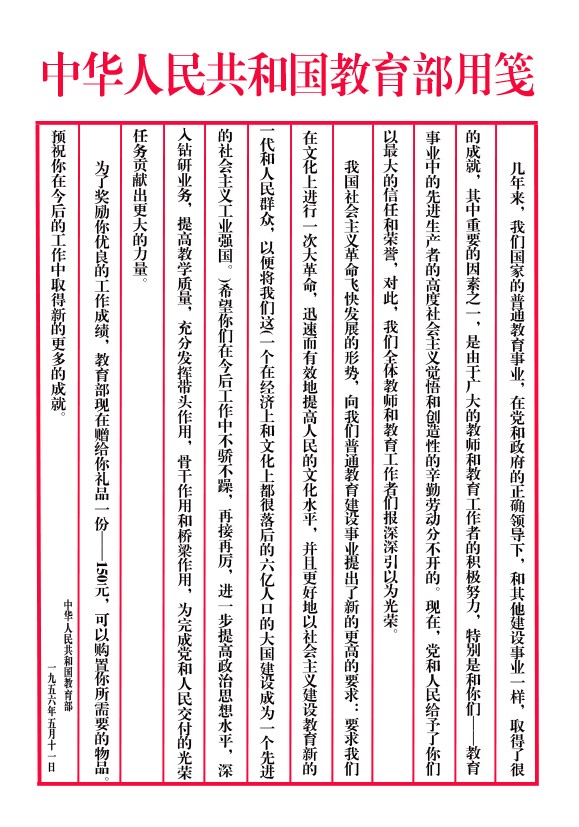 中华人民共和国教育部用笺
几年来，我们国家的普通教育事业，在党和政府的正确领导下，和其他建设事业一样，取得了很
的成就，其中重要的因素之一，是由于广大的教师和教育工作者的积极努力，特别是和你们——教育
事业中的先进生产者的高度社会主义觉悟和创造性的辛勤劳动分不开的。现在，党和人民给予了你们
以最大的信任和荣誉，对此，我们全体教师和教育工作者们报深深引以为光荣。
我国社会主义革命飞快发展的形势，向我们普通教育建设事业提出了新的更高的要求：要求我们
在文化上进行一次大革命，迅速而有效地提高人民的文化水平，并且更好地以社会主义建设教育新的
一代和人民群众，以便将我们这(一个在经济上和文化上都很落后的六亿人口的大国建设成为一个先进
的社会主义工业强国。)希望你们在今后工作中不骄不躁，再接再厉，进一步提高政治思想水平，深
入钻研业务，提高教学质量，充分发挥带头作用，骨干作用和桥梁作用，为完成党和人民交付的光荣
任务贡献出更大的力量。
为了奖励你优良的工作成绩，教育部现在赠给你礼品一份——150元，可以购置你所需要的物品。
预祝你在今后的工作中取得新的更多的成就。
中华人民共和国教育部
一九五六年五月十一日